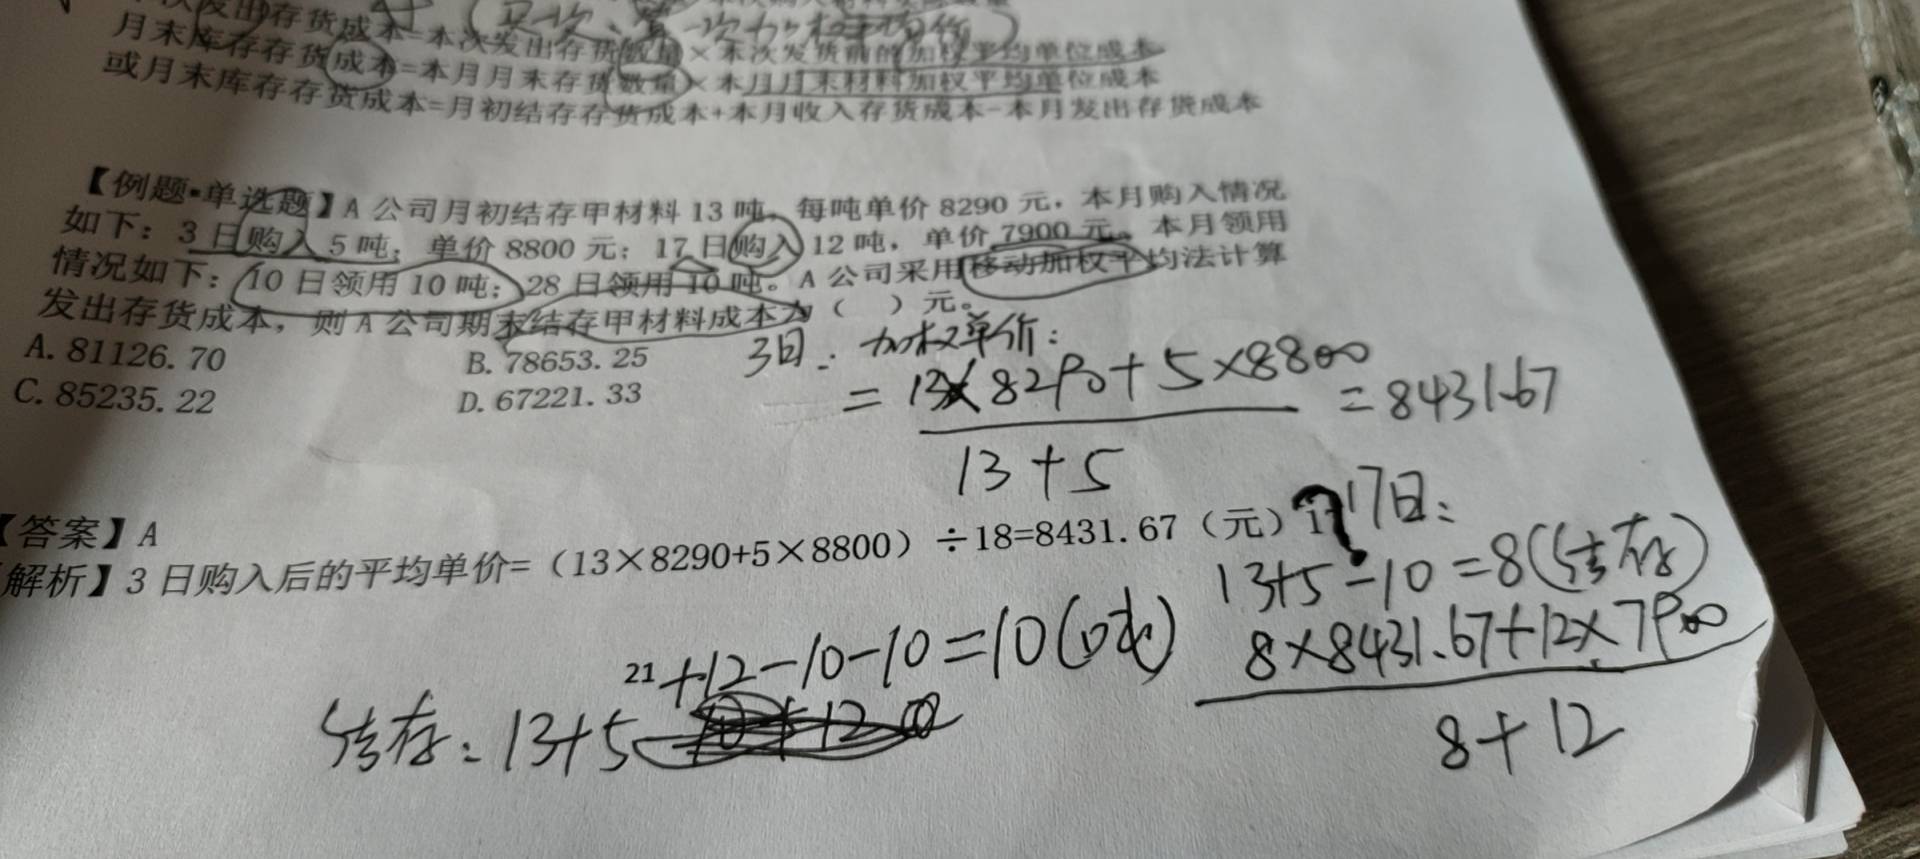 次发出存货成本=本次发出存货数量×本次发货前的加权平均单位成本
月末库存存货成本=本月月末存货数量×本月月末材料加权平均单位成本
或月末库存存货成本=月初结存存货成本+本月收入存货成本-本月发出存货成本
【例题·单选题】A 公司月初结存甲材料 13 吨，每吨单价 8290 元，本月购入情况
如下：3 日购入 5 吨；单价 8800 元；17 日购入 12 吨，单价 7900 元。本月领用
情况如下：10 日领用 10 吨；28 日领用 10 吨。A 公司采用移动加权平均法计算
发出存货成本，则 A 公司期末结存甲材料成本为（ ）元。
A. 81126.70 B. 78653.25
C. 85235.22 D. 67221.33
3日：加权单价：
= 13×8290+5×8800 = 8431.67
13+5
【答案】A
解析】3 日购入后的平均单价=（13×8290+5×8800）÷18=8431.67（元）
17日：
13+5-10=8(结存)
8×8431.67+12×7900
8+12
21
+12-10-10=10(吨)
结存：13+5